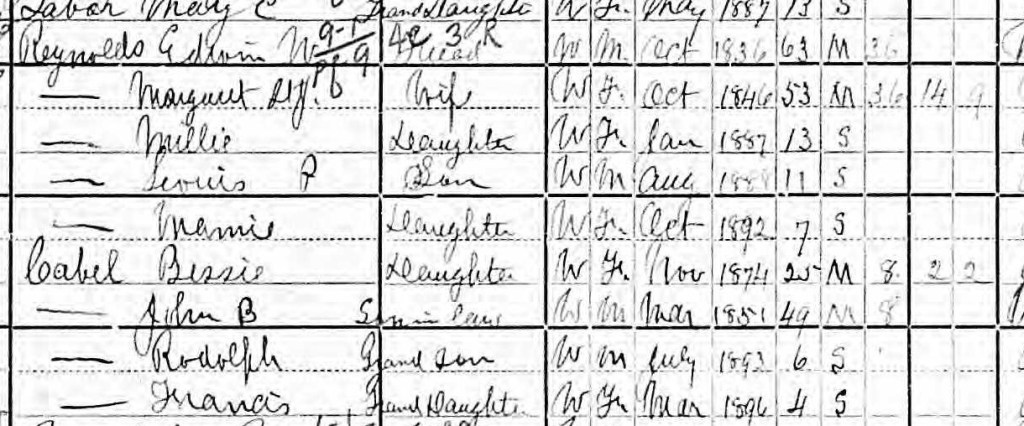 Labor Mary C Grand Daughter W F. May 1887 13 S
Reynolds Edwin W Head W M. Oct 1836 63 M 36
— Margaret Wife W F. Oct 1846 53 M 36 14 9
— Millie Daughter W F. Jan 1887 13 S
— Louis P Son W M Aug 1888 11 S
— Mamie Daughter W F. Oct 1892 7 S
Cabel Bessie Daughter W F. Nov 1874 25 M 8 2 2
— John B Son in law W M Mar 1851 49 M 8
— Rodolph Grand Son W M July 1893 6 S
— Francis Grand Daughter W F. Mar 1896 4 S